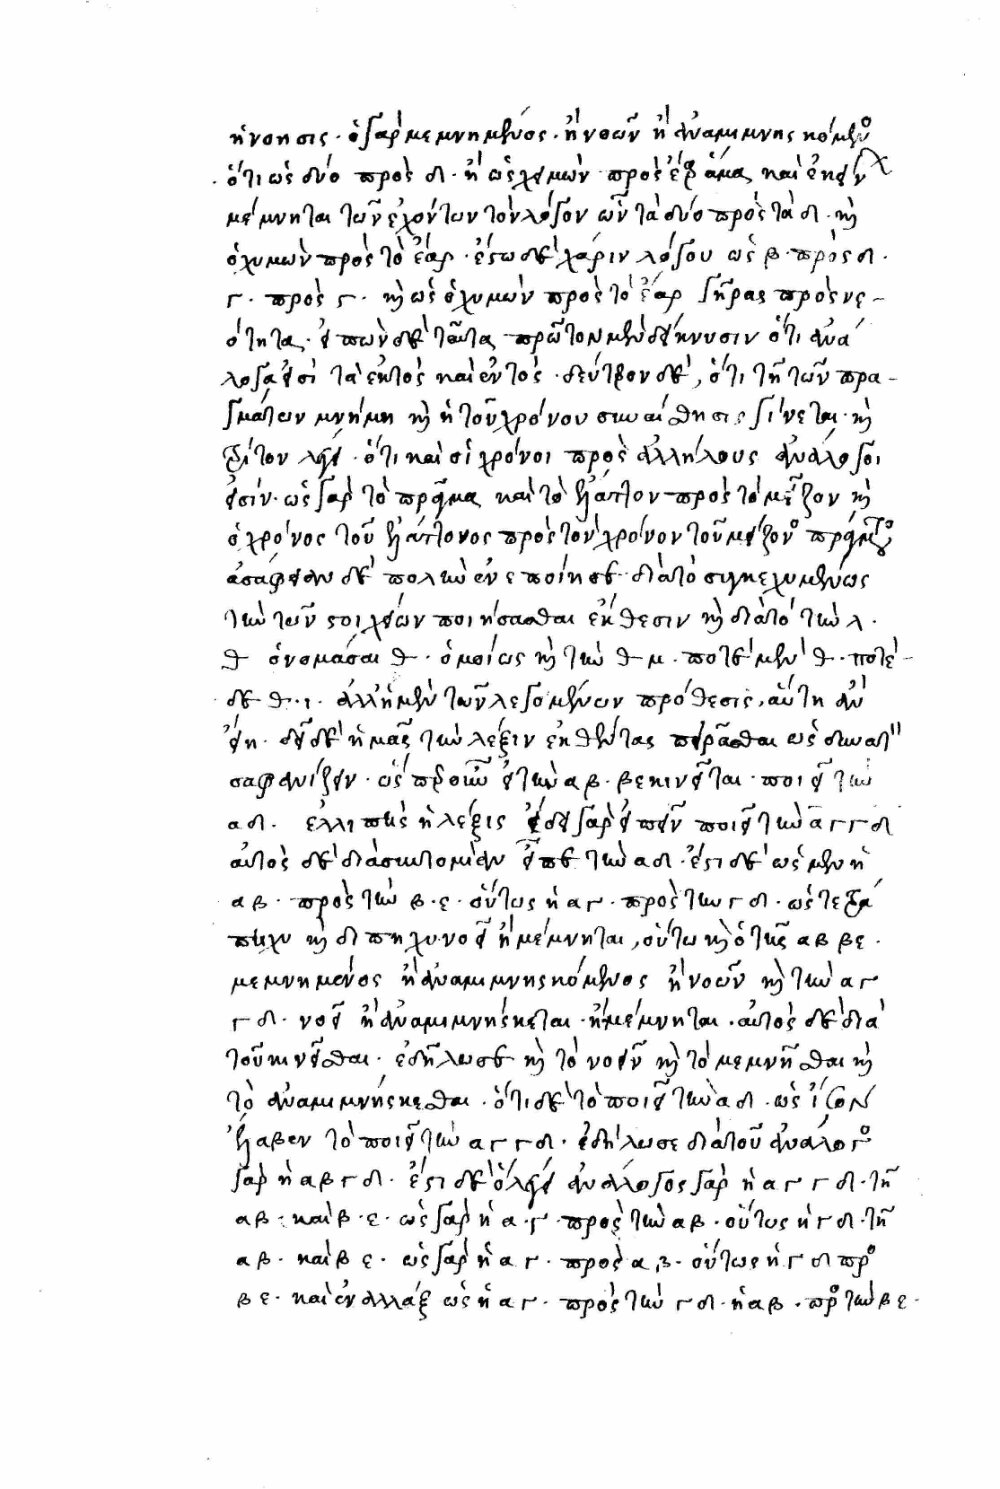 ἡ νόησις · ὁ γὰρ μεμνημένος · ἢ νοῶν ἢ ἀναμιμνησκόμενος
ὅτι ὡς δύο πρὸς δ · ἢ ὡς χειμὼν πρὸς ἔαρ ἅμα καὶ ἐκείν
μέμνηται τῶν ἐχόντων τὸν λόγον ὧν τὰ δύο πρὸς τὰ δ · καὶ
ὁ χυμὼν πρὸς τὸ ἔαρ · ἔστω δὲ χάριν λόγου ὡς β · πρὸς δ ·
γ · πρὸς ϛ · καὶ ὡς ὁ χυμὼν πρὸς τὸ ἔαρ γῆρας πρὸς νε-
ότητα · εἰπὼν δὲ ταῦτα πρῶτον μὲν δείκνυσιν ὅτι ἀνά
λογά εἰσι τὰ ἐκτὸς καὶ ἐντός · δεύτερον δὲ, ὅτι τῇ τῶν πρα-
γμάτων μνήμῃ καὶ ἡ τοῦ χρόνου συναίσθησις γίνεται · καὶ
τρίτον λέγει · ὅτι καὶ οἱ χρόνοι πρὸς ἀλλήλους ἀνάλογοι
εἰσιν · ὡς γὰρ τὸ πρᾶγμα καὶ τὸ ἔλαττον πρὸς τὸ μεῖζον καὶ
ὁ χρόνος τοῦ ἐλάττονος πρὸς τὸν χρόνον τοῦ μείζονος πράγματος
ἀσάφειαν δὲ πολλὴν ἐνεποίησε διὰ τὸ συγκεχυμένως
τὴν τῶν στοιχείων ποιήσασθαι ἔκθεσιν καὶ διὰ τὸ τὴν λ ·
θ ὀνομάσαι θ · ὁμοίως καὶ τὴν θ μ · ποτὲ μὲν θ · ποτὲ-
δὲ θ · ι · ἀλλ' ἡ μὲν τῶν λεγομένων πρόθεσις, αὕτη ἂν
εἴη · δεῖ δὲ ἡμᾶς τὴν λέξιν ἐκθέντας πειρᾶσθαι ὡς δυνατὸν
σαφηνίζειν · ὡς εἰ τὴν α β · β ε κινεῖται · ποιεῖ τὴν
α δ · ἐλλιπὴς ἡ λέξις ἔδει γὰρ εἰπεῖν ποιεῖ τὴν α γ γ δ
αὐτὸς δὲ διὰ συντομίαν εἶπε τὴν α δ · ἔστι δὲ ὡς μὲν ἡ
α β · πρὸς τὴν β · ε · οὕτως ἡ α γ · πρὸς τὴν γ δ · ὡς τετρά
πηχυ καὶ διπηχυ νοεῖ ἢ μέμνηται, οὕτω καὶ ὁ τῆς α β β ε ·
μεμνημένος ἢ ἀναμιμνησκόμενος ἢ νοῶν καὶ τὴν α γ
γ δ · νοεῖ ἢ ἀναμιμνήσκεται · ἢ μέμνηται · αὐτὸς δὲ διὰ
τοῦ κινεῖσθαι · ἐδήλωσε καὶ τὸ νοεῖν καὶ τὸ μεμνῆσθαι καὶ
τὸ ἀναμιμνήσκεσθαι · ὅτι δὲ τὸ ποιεῖ τὴν α δ · ὡς ἴσον
ἔλαβεν τὸ ποιεῖ τὴν α γ γ δ · ἐδήλωσε διὰ τοῦ ἀνάλογος
γὰρ ἡ α β γ δ · ἔστι δὲ ὃ λέγει ἀνάλογος γὰρ ἡ α γ γ δ · τῇ
α β · καὶ β · ε · ὡς γὰρ ἡ α · γ · πρὸς τὴν α β · οὕτως ἡ γ δ · τῇ
α β · καὶ β ε · ὡς γὰρ ἡ α γ · πρὸς α β · οὕτως ἡ γ δ πρὸς
β ε · καὶ ἐναλλὰξ ὡς ἡ α γ · πρὸς τὴν γ δ · ἡ α β · πρὸς τὴν β ε ·